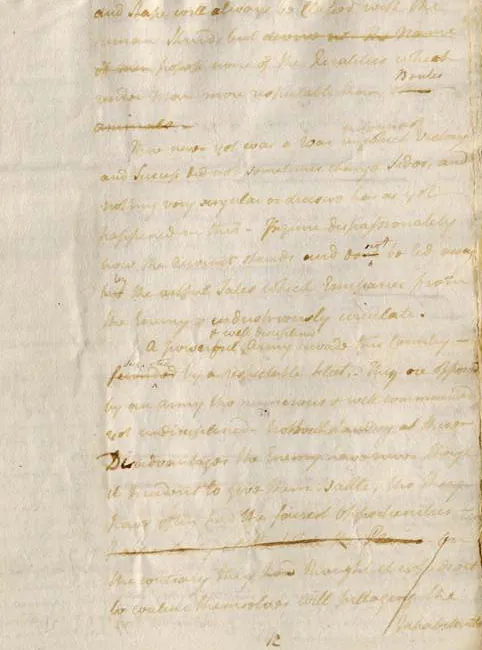 and Shape will always be Classed with the
human Kind, but deserve not the Name
of men possess none of the Qualities which
render Man more respectable than Brutes
animals.
There never yet was a War in which Victory
and Success did not sometimes change Sides, and
nothing very singular or decisive has as yet
happened in this - Inquire dispassionately
how the Account stands and do not be led away
by the artful Tales which Emissaries from
the Enemy so industriously circulate.
A powerful & well disciplined Army invade this Country -
by a respectable fleet - They are opposed
by an Army tho numerous & well commanded
not undisciplined. Notwithstanding all these
Disadvantages the Enemy have never thought
it prudent to give them Battle, tho they
have often had the fairest Opportunities -
On
the contrary they have thought it expedient
to content themselves with pillaging the
Inhabitants
12